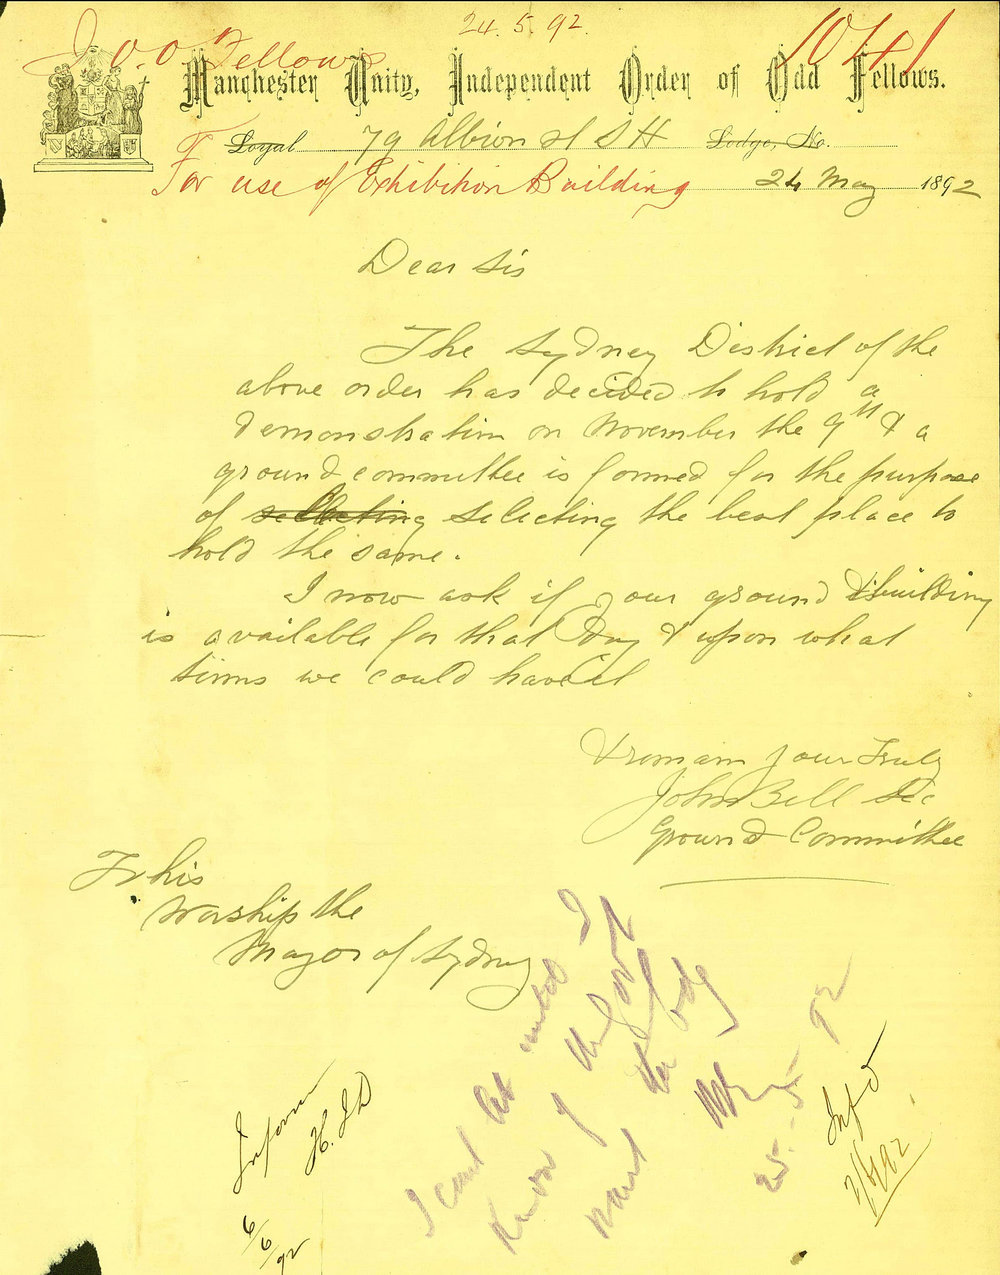 24.5.92.
I.O.O Fellows
1041
Manchester Unity, Independent Order of Odd Fellows.
Loyal 79 Albion St S H Lodge, No.
For use of Exhibition Building 24 May 1892
Dear Sir
The Sydney District of the
above order has decided to hold a
demonstration on November the 9th & a
ground committee is formed for the purpose
of selecting the best place to
hold the same.
I now ask if your ground & building
is available for that Day & upon what
terms we could have it
I remain your Truly
John Bell Sec
Ground Committee
To his
Worship the
Mayor of Sydney
I cant at
until I
know if the Govt
want the
25.5.92
Inform
H.J.D
6/6/92
Infd